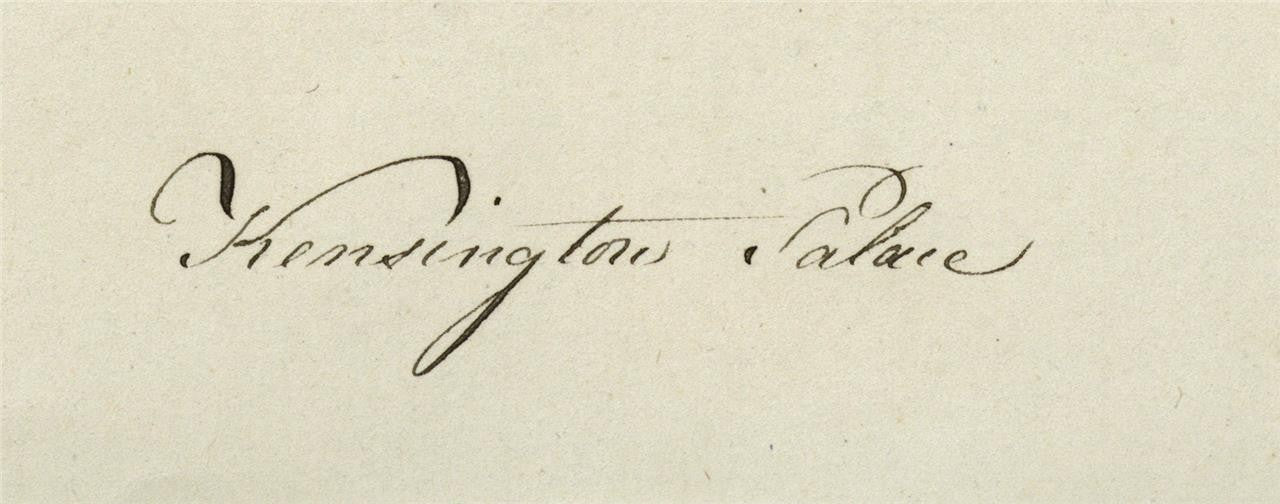 Kensington Palace